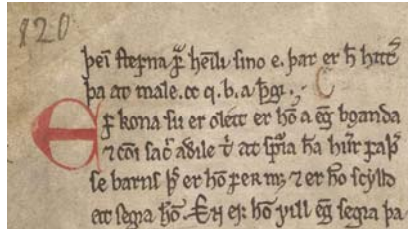 120
þeī stefna f̄ heīli sino e. þar er h̄ hitt͛
þa at male. oc q. b. a þīgi.
Ef kona su er olett er hō a eg̅ boanda
⁊ cōi sac͛ aðile t͛ at spyria h̅a hu͛r faþ͛
se barns þ͛ er hō fer m; ⁊ er hō scylld
at segia hō. En ef hō vill eg̅ segia þa